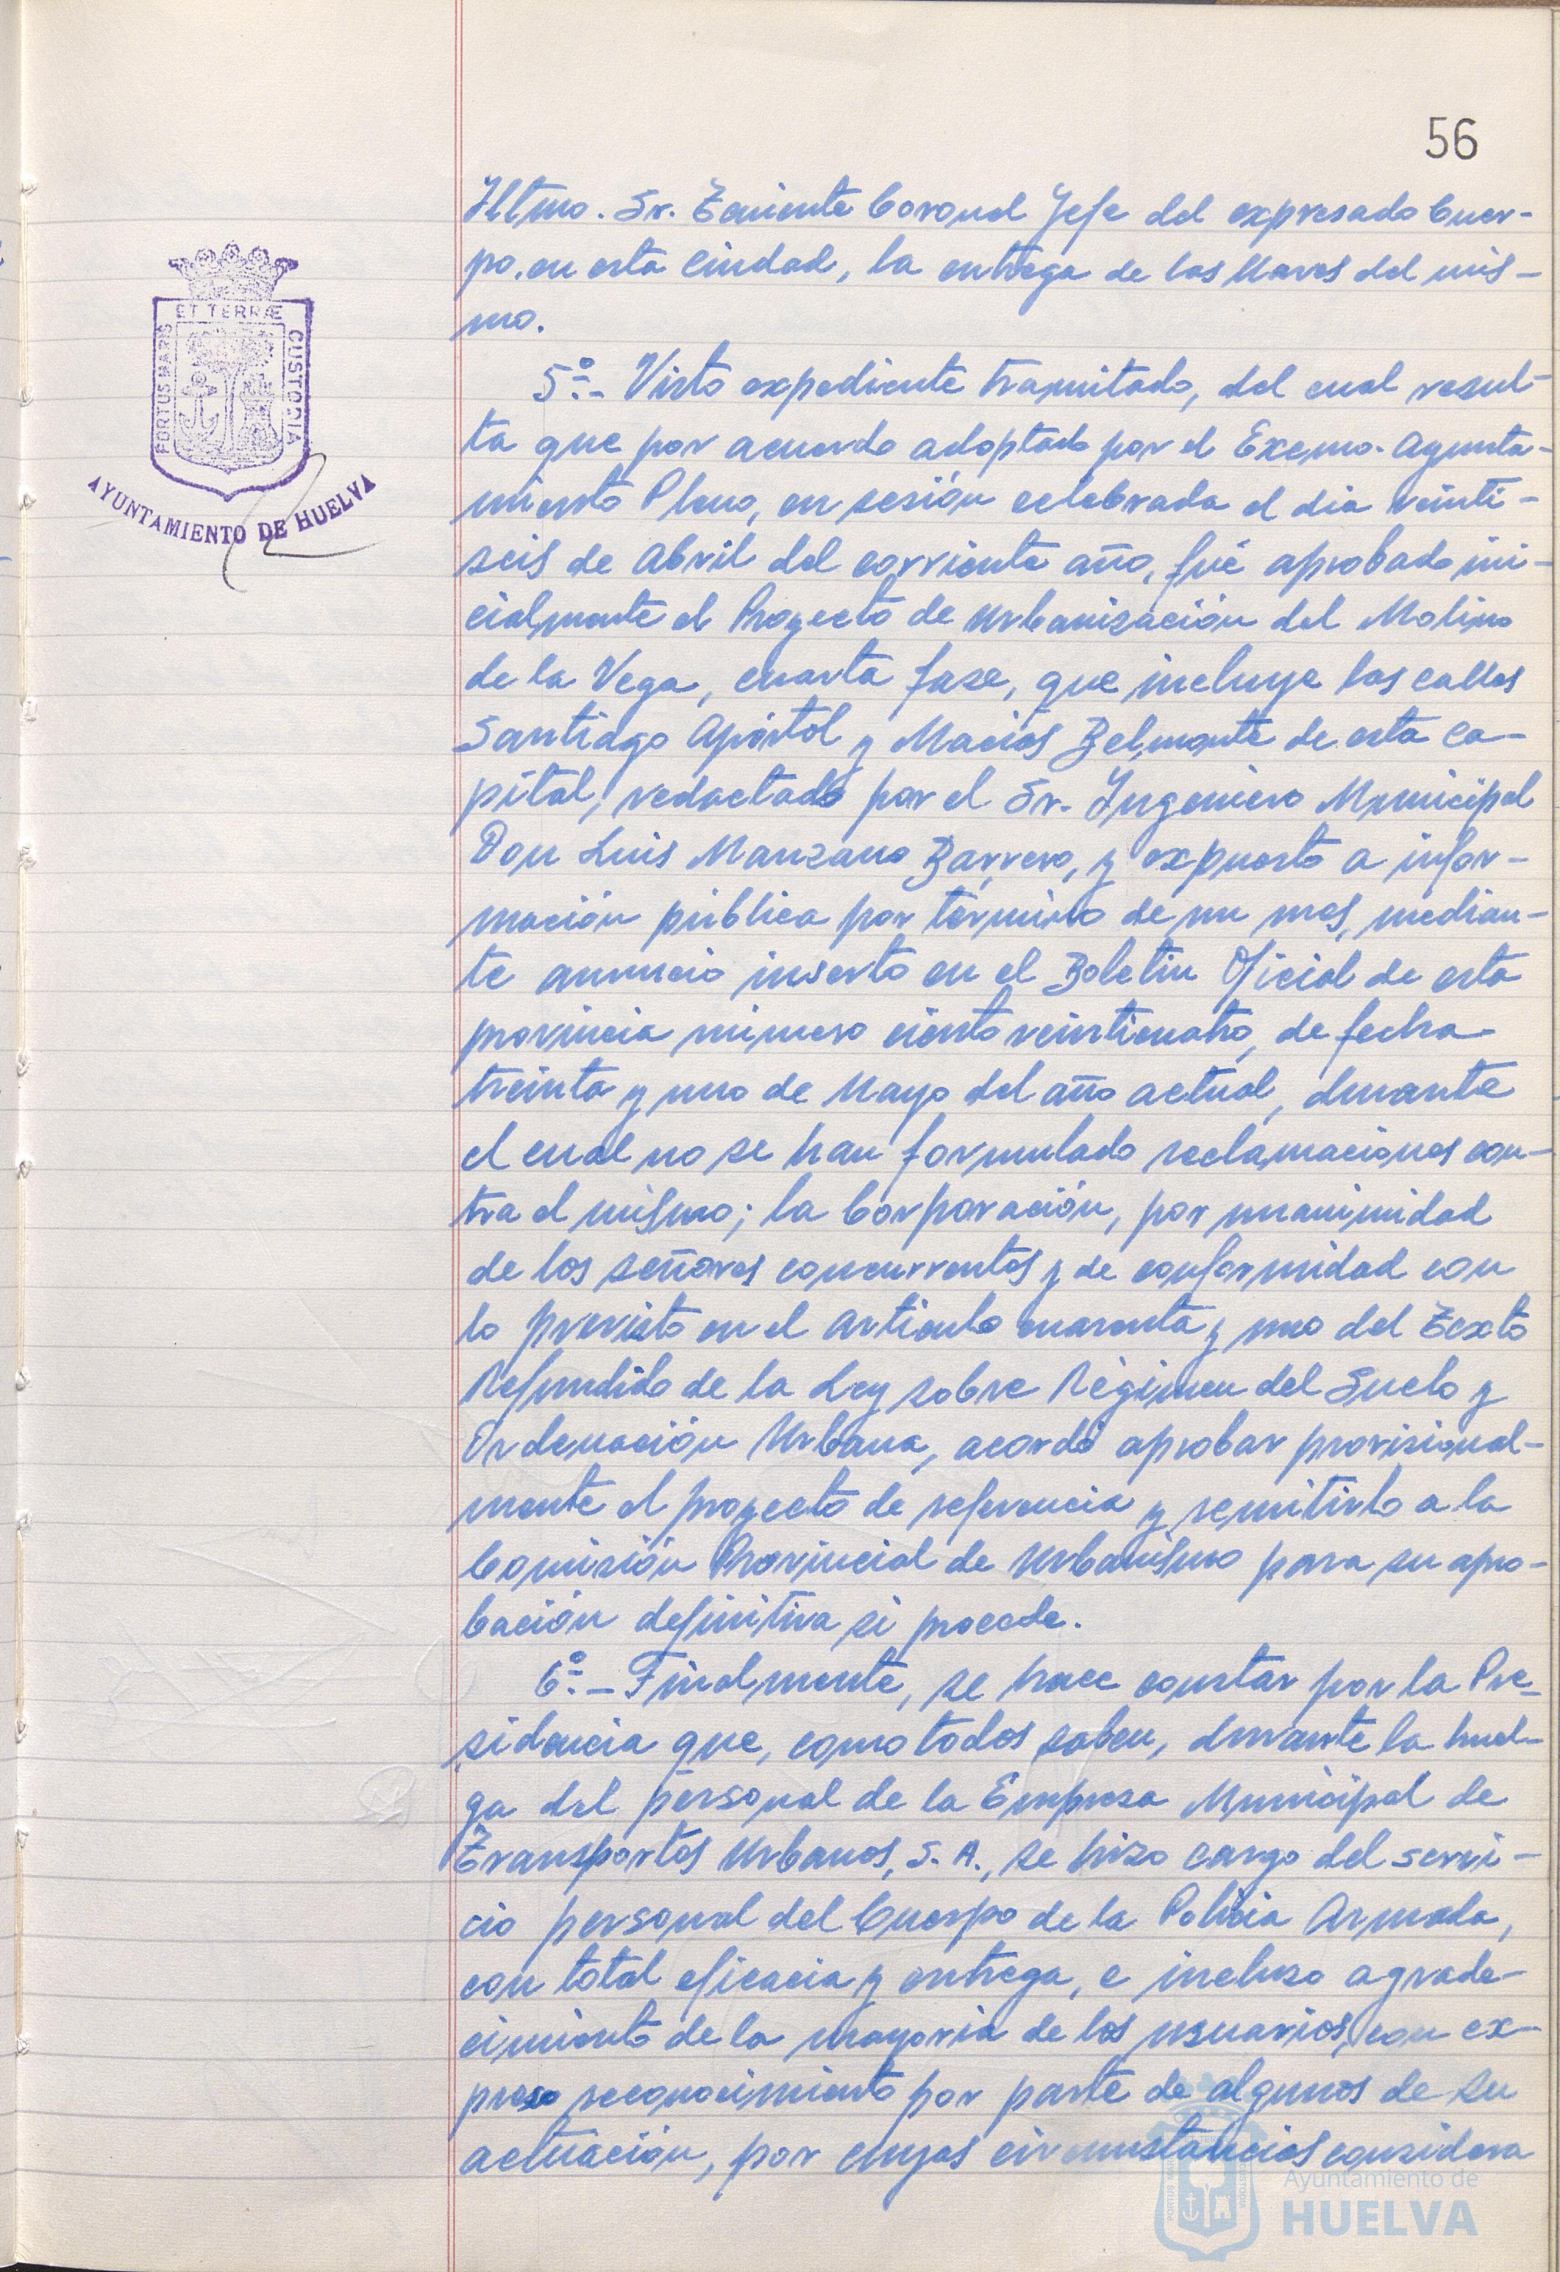 56
Iltmo. Sr. Teniente Coronel Jefe del expresado Cuer-
po, en esta Ciudad, la entrega de las llaves del mis-
mo.
PORTUS MARIS
ET TERRÆ
CUSTODIA
AYUNTAMIENTO DE HUELVA
5º.- Visto expediente tramitado, del cual resul-
ta que por acuerdo adoptado por el Excmo. Ayunta-
miento Pleno, en sesión celebrada el dia veinti-
seis de Abril del corriente año, fué aprobado ini-
cialmente el Proyecto de Urbanización del Molino
de la Vega, cuarta fase, que incluye las calles
Santiago Apóstol y Macías Belmonte de esta Ca-
pital, redactado por el Sr. Ingeniero Municipal
Don Luis Manzano Barrero, y expuesto a infor-
mación pública por término de un mes, median-
te anuncio inserto en el Boletin Oficial de esta
provincia número ciento veinticuatro, de fecha
treinta y uno de Mayo del año actual, durante
el cual no se han formulado reclamaciones con-
tra el mismo; la Corporación, por unanimidad
de los señores concurrentes y de conformidad con
lo previsto en el artículo cuarenta y uno del Texto
Refundido de la Ley sobre Régimen del Suelo y
Ordenación Urbana, acordó aprobar provisional-
mente el proyecto de referencia y remitirlo a la
Comisión Provincial de Urbanismo para su apro-
bación definitiva si procede.
6º.- Finalmente, se hace constar por la Pre-
sidencia que, como todos saben, durante la huel-
ga del personal de la Empresa Municipal de
Transportes Urbanos, S. A., se hizo cargo del servi-
cio personal del Cuerpo de la Policia Armada,
con total eficacia y entrega, e incluso agrade-
cimiento de la mayoria de los usuarios, con ex-
preso reconocimiento por parte de algunos de su
actuación, por cuyas circunstancias considera
Ayuntamiento de
HUELVA